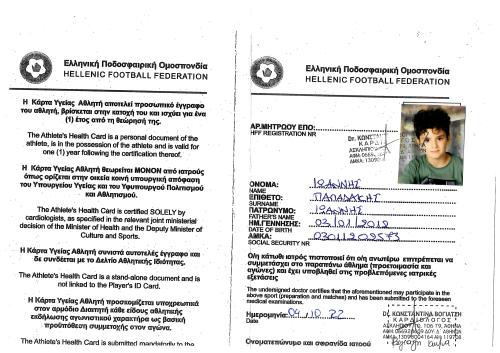 Ελληνική Ποδοσφαιρική Ομοσπονδία
HELLENIC FOOTBALL FEDERATION
Η Κάρτα Υγείας Αθλητή αποτελεί προσωπικό έγγραφο
του αθλητή, βρίσκεται στην κατοχή του και ισχύει για ένα
(1) έτος από τη θεώρησή της.
The Athlete's Health Card is a personal document of the
athlete, is in the possession of the athlete and is valid for
one (1) year following the certification thereof.
Η Κάρτα Υγείας Αθλητή θεωρείται ΜΟΝΟΝ από ιατρούς
όπως ορίζεται στην οικεία κοινή υπουργική απόφαση
του Υπουργείου Υγείας και του Υφυπουργού Πολιτισμού
και Αθλητισμού.
The Athlete's Health Card is certified SOLELY by
cardiologists, as specified in the relevant joint ministerial
decision of the Minister of Health and the Deputy Minister of
Culture and Sports.
Η Κάρτα Υγείας Αθλητή συνιστά αυτοτελές έγγραφο και
δε συνδέεται με το Δελτίο Αθλητικής Ιδιότητας.
The Athlete's Health Card is a stand-alone document and is
not linked to the Player's ID Card.
Η Κάρτα Υγείας Αθλητή προσκομίζεται υποχρεωτικά
στον αρμόδιο Διαιτητή κάθε είδους αθλητικής
εκδήλωσης αγωνιστικού χαρακτήρα ως βασική
προϋπόθεση συμμετοχής στον αγώνα.
The Athlete's Health Card is submitted mandatorily to the
Ελληνική Ποδοσφαιρική Ομοσπονδία
HELLENIC FOOTBALL FEDERATION
ΑΡ.ΜΗΤΡΩΟΥ ΕΠΟ:
HFF REGISTRATION NR
Dr. ΚΩΝΣΤΑΝ
ΚΑΡΔΙ
ΟΝΟΜΑ: ΙΩΑΝΝΗΣ
NAME
ΕΠΙΘΕΤΟ: ΠΑΠΑΔΑΚΗΣ
SURNAME
ΠΑΤΡΩΝΥΜΟ: ΙΩΑΝΝΗΣ
FATHER'S NAME
ΗΜ.ΓΕΝΝΗΣΗΣ: 03/01/2012
DATE OF BIRTH
ΑΜΚΑ:
SOCIAL SECURITY NR
Ο/η κάτωθι ιατρός πιστοποιεί ότι ο/η ανωτέρω επιτρέπεται να
συμμετάσχει στο παραπάνω άθλημα (προετοιμασία και
αγώνες) και έχει υποβληθεί στις προβλεπόμενες ιατρικές
εξετάσεις
The undersigned doctor certifies that the aforementioned may participate in the
above sport (preparation and matches) and has been submitted to the foreseen
medical examinations.
Ημερομηνία: 04/10/22
Date
Dr. ΚΩΝΣΤΑΝΤΙΝΑ ΒΟΓΙΑΤΖΗ
ΚΑΡΔΙΟΛΟΓΟΣ
Ονοματεπώνυμο και σφραγίδα ιατρού